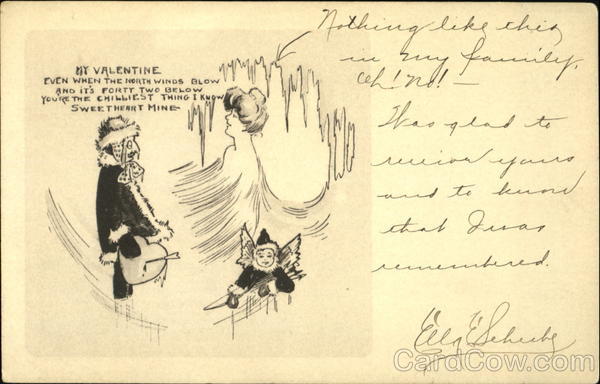 MY VALENTINE
EVEN WHEN THE NORTH WINDS BLOW
AND IT'S FORTY TWO BELOW
YOU'RE THE CHILLIEST THING I KNOW
SWEETHEART MINE
Nothing like this
in my family.
Oh! No! —
Was glad to
receive yours
and to know
that I was
remembered.
CardCow.com